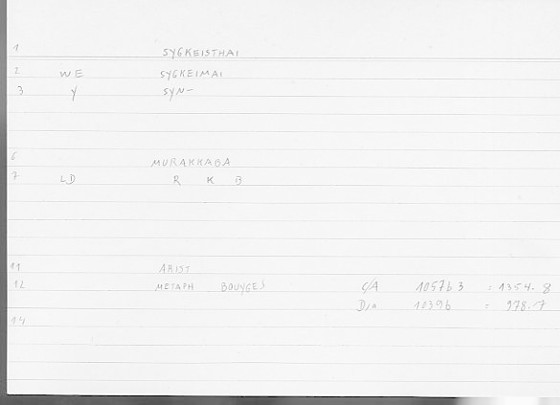 1 SYGKEISTHAI
2 WE SYGKEIMAI
3 Y SYN-
6 MURAKKABA
7 LD R K B
11 ARIST
12 METAPH BOUYGES C/A 1057b3 = 1354.8
D/A 1039b = 978.7
14